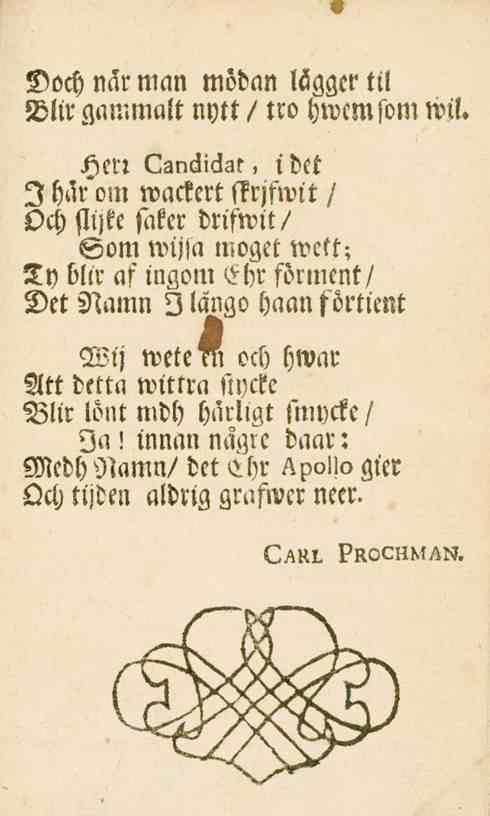 Doch når man mödan lågger til
Blir gammalt nytt / tro hwem som wil.
Herr Candidat, i det
I hår om wackert skrifwit /
Och slijke saker drifwit /
Som wijsa moget wett;
Ty blir af ingom Ehr förment /
Det Namn I långo haan förtient
Wij wete en och hwar
Att detta wittra stycke
Blir lönt mdh hårligt smycke /
Ja! innan någre daar:
Medh Namn / det Ehr Apollo gier
Och tijden aldrig grafwer neer.
CARL PROCHMAN.